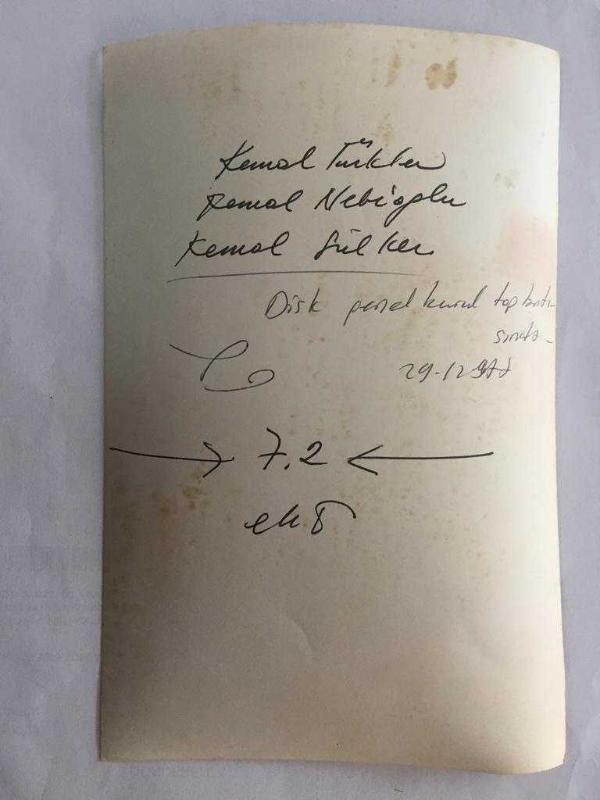 Kemal Türkler
Kemal Nebioğlu
Kemal Sülker
Disk genel kurul toplantı
sırata
29-12
7.2